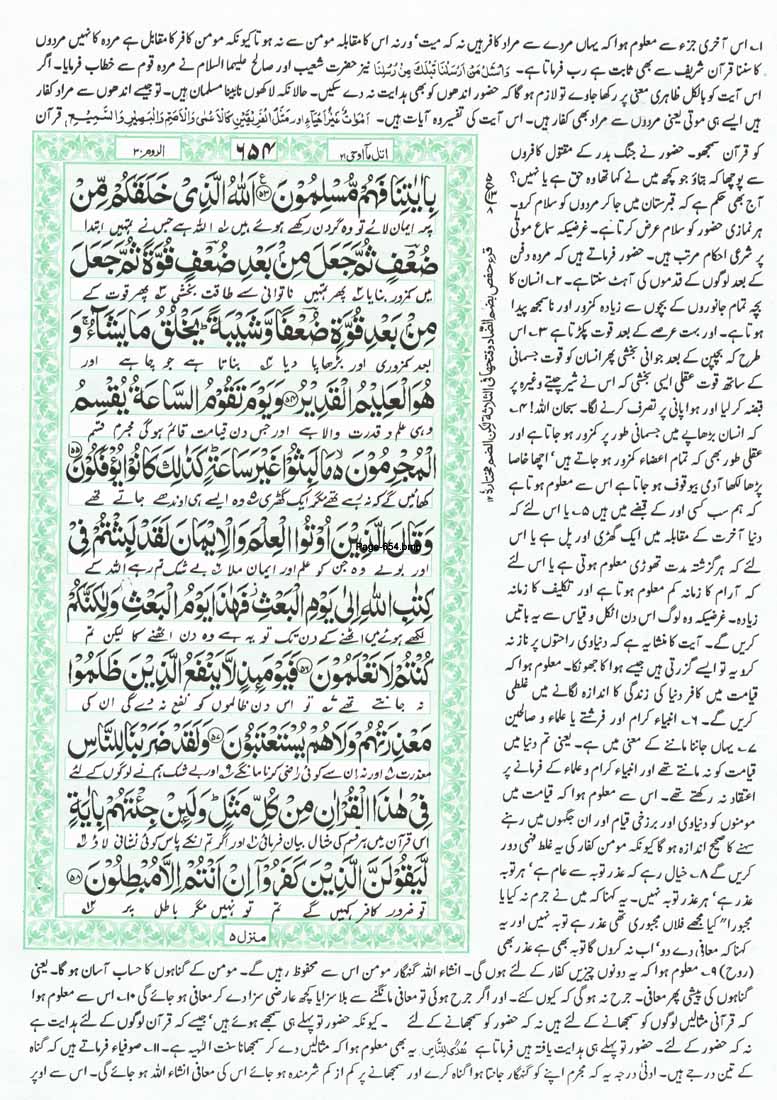 ۱۔ اس آخری جزء سے معلوم ہوا کہ یہاں مردے سے مراد کافر ہیں نہ کہ میت، ورنہ اس کا مقابلہ مومن سے نہ ہوتا کیونکہ مومن کافر کا مقابل ہے مردہ کا نہیں مردوں
کا سننا قرآن شریف سے بھی ثابت ہے رب فرماتا ہے۔ وَاسْئَلْ مَنْ اَرْسَلْنَا قَبْلَكَ مِنْ رُّسُلِنَا نیز حضرت شعیب اور صالح علیہما السلام نے مردہ قوم سے خطاب فرمایا۔ اگر
اس آیت کو بالکل ظاہری معنی پر رکھا جاوے تو لازم ہو گا کہ حضور اندھوں کو بھی ہدایت نہ دے سکیں۔ حالانکہ لاکھوں نابینا مسلمان ہیں۔ تو جیسے اندھوں سے مراد کفار
ہیں ایسے ہی موتی یعنی مردوں سے مراد بھی کفار ہیں۔ اس آیت کی تفسیر وہ آیات ہیں۔ اَمْوَاتٌ غَيْرُ اَحْيَآءٍ اور مَثَلُ الْفَرِيْقَيْنِ كَالْاَعْمٰى وَالْاَصَمِّ وَالْبَصِيْرِ وَالسَّمِيْعِ قرآن
کو قرآن سمجھو۔ حضور نے جنگ بدر کے مقتول کافروں
سے پوچھا کہ بتاؤ جو کچھ میں نے کہا تھا وہ حق ہے یا نہیں؟
آج بھی حکم ہے کہ قبرستان میں جا کر مردوں کو سلام کرو۔
ہر نمازی حضور کو سلام عرض کرتا ہے۔ غرضیکہ سماع موتی
پر شرعی احکام مرتب ہیں۔ حضور فرماتے ہیں کہ مردہ دفن
کے بعد لوگوں کے قدموں کی آہٹ سنتا ہے۔ ۲۔ انسان کا
بچہ تمام جانوروں کے بچوں سے زیادہ کمزور اور ناسمجھ پیدا
ہوتا ہے۔ اور بہت عرصے کے بعد قوت پکڑتا ہے ۳۔ اس
طرح کہ بچپن کے بعد جوانی بخشی پھر انسان کو قوت جسمانی
کے ساتھ قوت عقلی ایسی بخشی کہ اس نے شیر چیتے وغیرہ پر
قبضہ کر لیا اور ہوا پانی پر تصرف کرنے لگا۔ سبحان اللہ! ۴۔
کہ انسان بڑھاپے میں جسمانی طور پر کمزور ہو جاتا ہے اور
عقلی طور بھی کہ تمام اعضاء کمزور ہو جاتے ہیں، اچھا خاصا
پڑھا لکھا آدمی بیوقوف ہو جاتا ہے اس سے معلوم ہوتا ہے
کہ ہم سب کسی اور کے قبضے میں ہیں ۵۔ یا اس لئے کہ
دنیا آخرت کے مقابلہ میں ایک گھڑی اور پل ہے یا اس
لئے کہ ہر گزشتہ مدت تھوڑی معلوم ہوتی ہے یا اس لئے
کہ آرام کا زمانہ کم معلوم ہوتا ہے اور تکلیف کا زمانہ
زیادہ۔ غرضیکہ وہ لوگ اس دن اٹکل و قیاس سے یہ باتیں
کریں گے۔ آیت کا منشا یہ ہے کہ دنیاوی راحتوں پر ناز نہ
کرو یہ تو ایسے گزرتی ہیں جیسے ہوا کا جھونکا۔ معلوم ہوا کہ
قیامت میں کافر دنیا کی زندگی کا اندازہ لگانے میں غلطی
کریں گے۔ ۶۔ انبیاء کرام اور فرشتے یا علماء و صالحین
۷۔ یہاں جاننا ماننے کے معنی میں ہے۔ یعنی تم دنیا میں
قیامت کو نہ مانتے تھے اور انبیاء کرام و علماء کے فرمانے پر
اعتقاد نہ رکھتے تھے۔ اس سے معلوم ہوا کہ قیامت میں
مومنوں کو دنیاوی اور برزخی قیام اور ان جگہوں میں رہنے
سہنے کا صحیح اندازہ ہو گا کیونکہ مومن کفار کی یہ غلط فہمی دور
کریں گے ۸۔ خیال رہے کہ عذر توبہ سے عام ہے، ہر توبہ
عذر ہے، ہر عذر توبہ نہیں۔ یہ کہنا کہ میں نے جرم نہ کیا یا
مجبورا" کیا مجھے فلاں مجبوری تھی عذر ہے توبہ نہیں اور یہ
کہنا کہ معافی دے دو، اب نہ کروں گا توبہ بھی ہے عذر بھی
اتل مآ اوحی ۲۱ ۶۵۴ الروم ۳۰
بِاٰيٰتِنَا فَهُمْ مُّسْلِمُوْنَ ﴿۵۳﴾ اَللّٰهُ الَّذِيْ خَلَقَكُمْ مِّنْ
پر ایمان لائے تو وہ گردن رکھے ہوئے ہیں ۱ اللہ ہے جس نے تمہیں ابتدا
ضُعْفٍ ثُمَّ جَعَلَ مِنْۢ بَعْدِ ضُعْفٍ قُوَّةً ثُمَّ جَعَلَ
میں کمزور بنایا ۲ پھر تمہیں ناتوانی سے طاقت بخشی ۳ پھر قوت کے
مِنْۢ بَعْدِ قُوَّةٍ ضُعْفًا وَّشَيْبَةً ؕ يَخْلُقُ مَا يَشَآءُ ۚ وَ
بعد کمزوری اور بڑھاپا دیا ۴ بناتا ہے جو چاہے اور
هُوَ الْعَلِيْمُ الْقَدِيْرُ ﴿۵۴﴾ وَيَوْمَ تَقُوْمُ السَّاعَةُ يُقْسِمُ
وہی علم و قدرت والا ہے اور جس دن قیامت قائم ہوگی مجرم قسم
الْمُجْرِمُوْنَ ۙ۬ مَا لَبِثُوْا غَيْرَ سَاعَةٍ ؕ كَذٰلِكَ كَانُوْا يُؤْفَكُوْنَ ﴿۵۵﴾
کھائیں گے کہ نہ رہے تھے مگر ایک گھڑی ۵ وہ ایسے ہی اوندھے جاتے تھے
وَقَالَ الَّذِيْنَ اُوْتُوا الْعِلْمَ وَالْاِيْمَانَ لَقَدْ لَبِثْتُمْ فِيْ
Page-654.bmp
اور بولے وہ جن کو علم اور ایمان ملا ۶ بے شک تم رہے اللہ کے
كِتٰبِ اللّٰهِ اِلٰى يَوْمِ الْبَعْثِ ؗ فَهٰذَا يَوْمُ الْبَعْثِ وَلٰكِنَّكُمْ
لکھے ہوئے میں اٹھنے کے دن تک تو یہ ہے وہ دن اٹھنے کا لیکن تم
كُنْتُمْ لَا تَعْلَمُوْنَ ﴿۵۶﴾ فَيَوْمَىِٕذٍ لَّا يَنْفَعُ الَّذِيْنَ ظَلَمُوْا
نہ جانتے تھے ۷ تو اس دن ظالموں کو نفع نہ دے گی ان کی
مَعْذِرَتُهُمْ وَلَا هُمْ يُسْتَعْتَبُوْنَ ﴿۵۷﴾ وَلَقَدْ ضَرَبْنَا لِلنَّاسِ
معذرت ۸ اور نہ ان سے کوئی راضی کرنا مانگے ۹ اور بے شک ہم نے لوگوں کے لئے
فِيْ هٰذَا الْقُرْاٰنِ مِنْ كُلِّ مَثَلٍ ؕ وَلَىِٕنْ جِئْتَهُمْ بِاٰيَةٍ
اس قرآن میں ہر قسم کی مثال بیان فرمائی ۱۰ اور اگر تم انکے پاس کوئی نشانی لاؤ ۱۱
لَّيَقُوْلَنَّ الَّذِيْنَ كَفَرُوْٓا اِنْ اَنْتُمْ اِلَّا مُبْطِلُوْنَ ﴿۵۸﴾
تو ضرور کافر کہیں گے تم تو نہیں مگر باطل پر ۱۲
منزل ۵
(روح) ۹۔ معلوم ہوا کہ یہ دونوں چیزیں کفار کے لئے ہوں گی۔ انشاء اللہ گنہگار مومن اس سے محفوظ رہیں گے۔ مومن کے گناہوں کا حساب آسان ہو گا۔ یعنی
گناہوں کی پیشی پھر معافی۔ جرح نہ ہو گی کہ کیوں کئے۔ اور اگر جرح ہوئی تو معافی مانگنے سے بلا سزا یا کچھ عارضی سزا دے کر معافی ہو جائے گی ۱۰۔ اس سے معلوم ہوا
کہ قرآنی مثالیں لوگوں کو سمجھانے کے لئے ہیں نہ کہ حضور کو سمجھانے کے لئے ۔ کیونکہ حضور تو پہلے ہی سمجھے ہوئے ہیں، جیسے کہ قرآن لوگوں کے لئے ہدایت ہے
نہ کہ حضور کے لئے۔ حضور تو پہلے ہی ہدایت یافتہ ہیں فرماتا ہے هُدًى لِّلنَّاسِ یہ بھی معلوم ہوا کہ مثالیں دے کر سمجھانا سنت الٰہیہ ہے۔ ۱۱۔ صوفیاء فرماتے ہیں کہ گناہ
کے تین درجے ہیں۔ ادنیٰ درجہ یہ کہ مجرم اپنے کو گنہگار جانتا ہوا گناہ کرے اور سمجھانے پر کم از کم شرمندہ ہو جائے اس کی معافی انشاء اللہ ہو جائے گی۔ اس سے اوپر